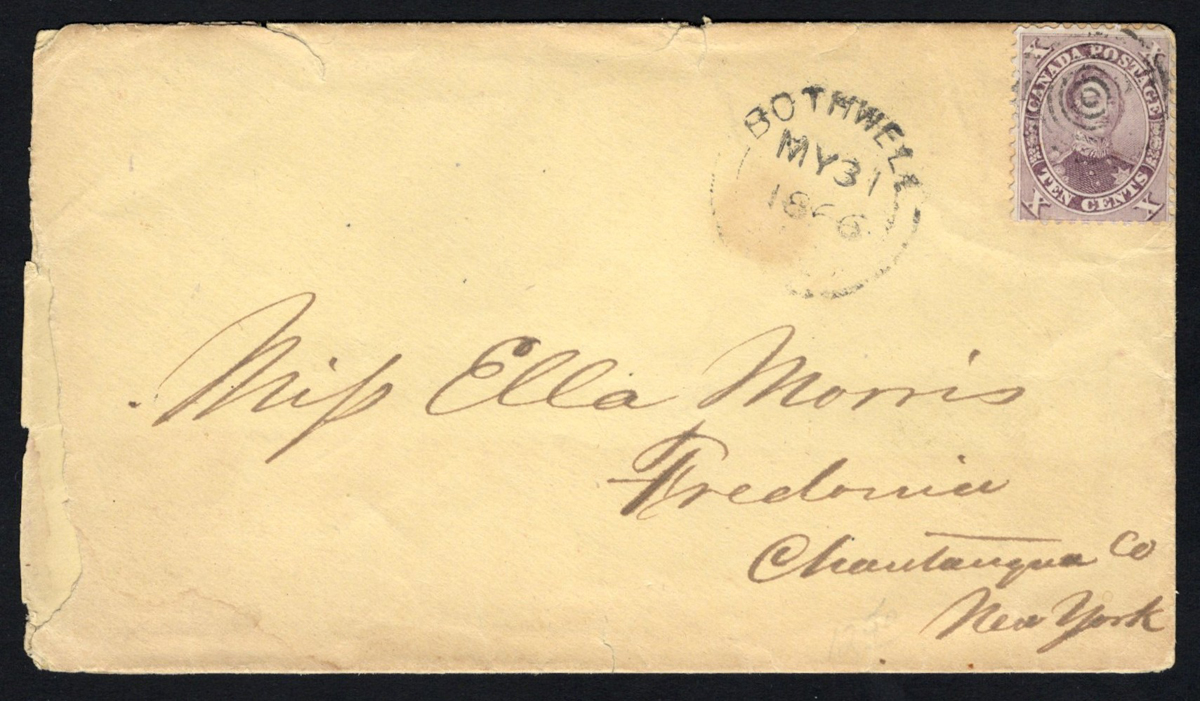 X CANADA POSTAGE X
X TEN CENTS X
BOTHWELL
MY 31
1866
Miss Ella Morris
Fredonia
Chautauqua Co
New York